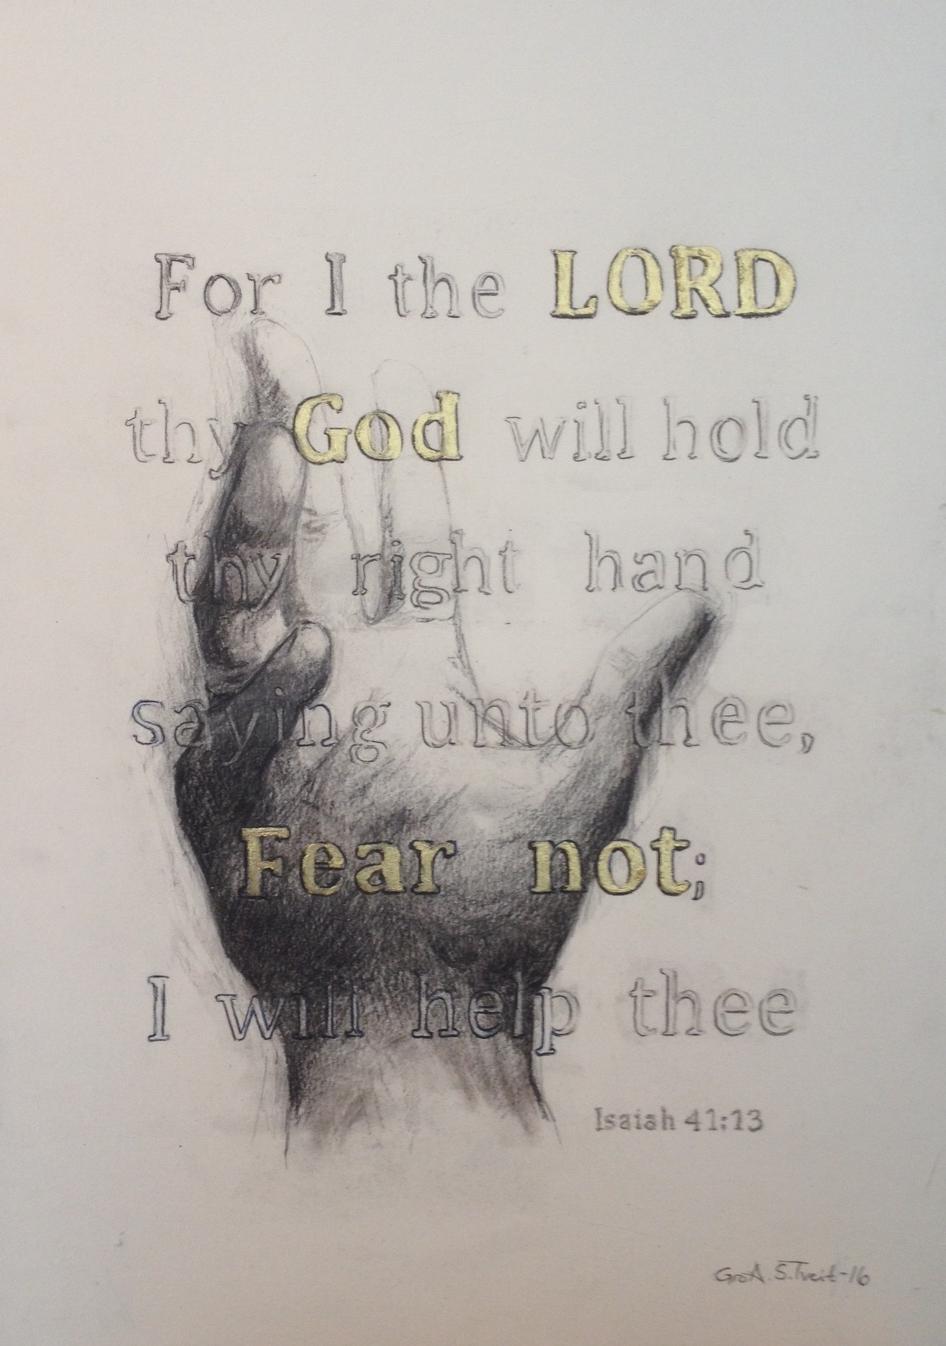 For I the LORD
thy God will hold
thy right hand
saying unto thee,
Fear not;
I will help thee
Isaiah 41:13
Gro A. S. Tveit -16